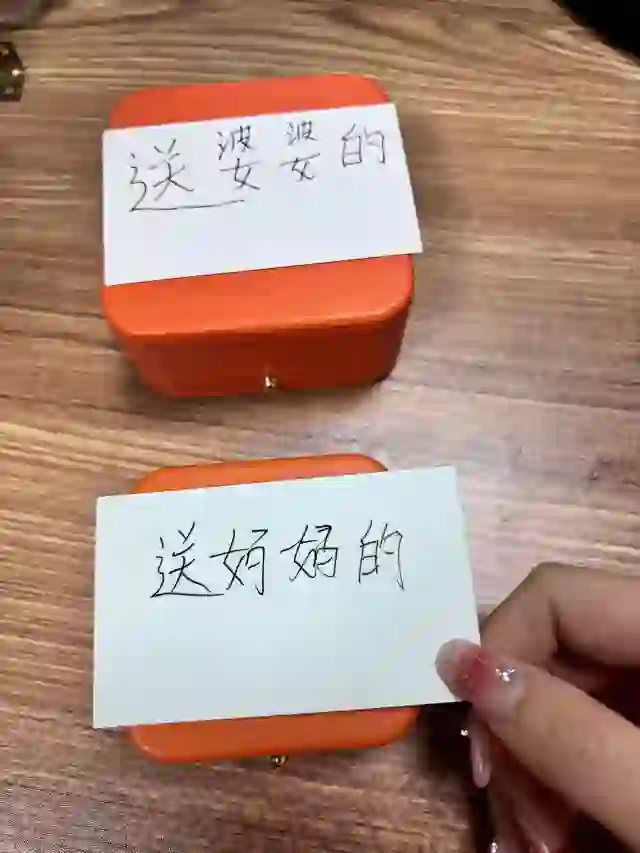 送婆婆的
送妈妈的